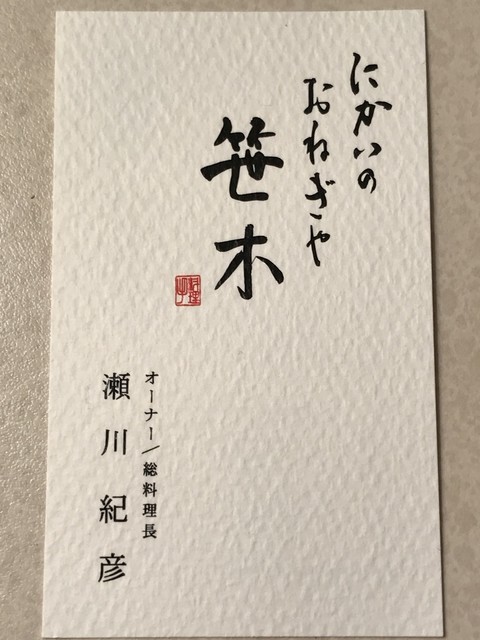 にかいの
おねぎや
笹木
オーナー/総料理長
瀬川紀彦